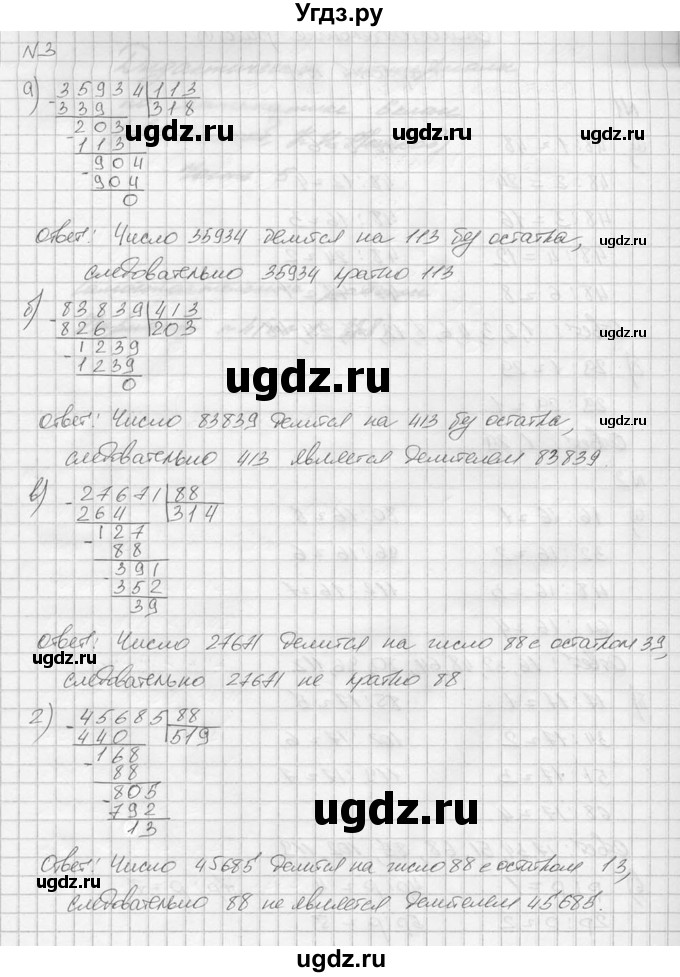 Угдз.ру
N3
а) 35934 | 113
339 | 318
203
113
904
904
0
ugdz.ru
ugdz.ru
Ответ: Число 35934 делится на 113 без остатка,
следовательно 35934 кратно 113
ugdz.ru
б) 83839 | 413
826 | 203
1239
1239
0
ugdz.ru
ugdz.ru
Ответ: Число 83839 делится на 413 без остатка,
следовательно 413 является делителем 83839
ugdz.ru
в) 27671 | 88
264 | 314
127
88
391
352
39
ugdz.ru
Ответ: Число 27671 делится на число 88 с остатком 39,
следовательно 27671 не кратно 88.
ugdz.ru
г) 45685 | 88
440 | 519
168
88
805
792
13
ugdz.ru
ugdz.ru
Ответ: Число 45685 делится на число 88 с остатком 13,
следовательно 88 не является делителем 45685.
ugdz.ru
ugdz.ru